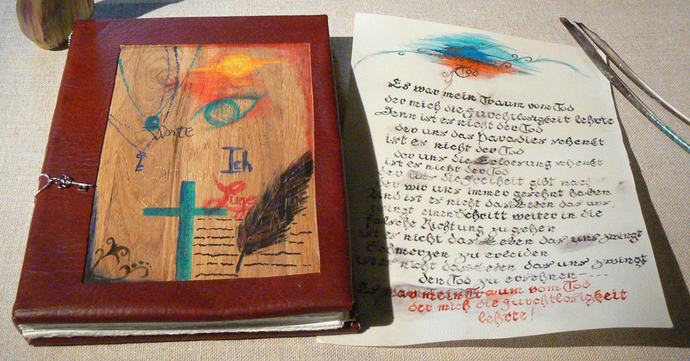 Worte
Ich
Lüge
Tod
Es war mein Traum vom Tod
der mich die Furchtlosigkeit lehrte
Denn ist es nicht der Tod
der uns das Paradies schenkt
ist es nicht der Tod
der uns die Erloesung schenkt
ist es nicht der Tod
der uns die Freiheit gibt nach
der wir uns immer gesehnt haben
Und ist es nicht das Leben das uns
zwingt einen Schritt weiter in die
falsche Richtung zu gehen
ist es nicht das Leben das uns zwingt
Schmerzen zu erleiden
ist es nicht das Leben das uns zwingt
den Tod zu ersehnen----
Es war mein Traum vom Tod
der mich die Furchtlosigkeit
lehrte!